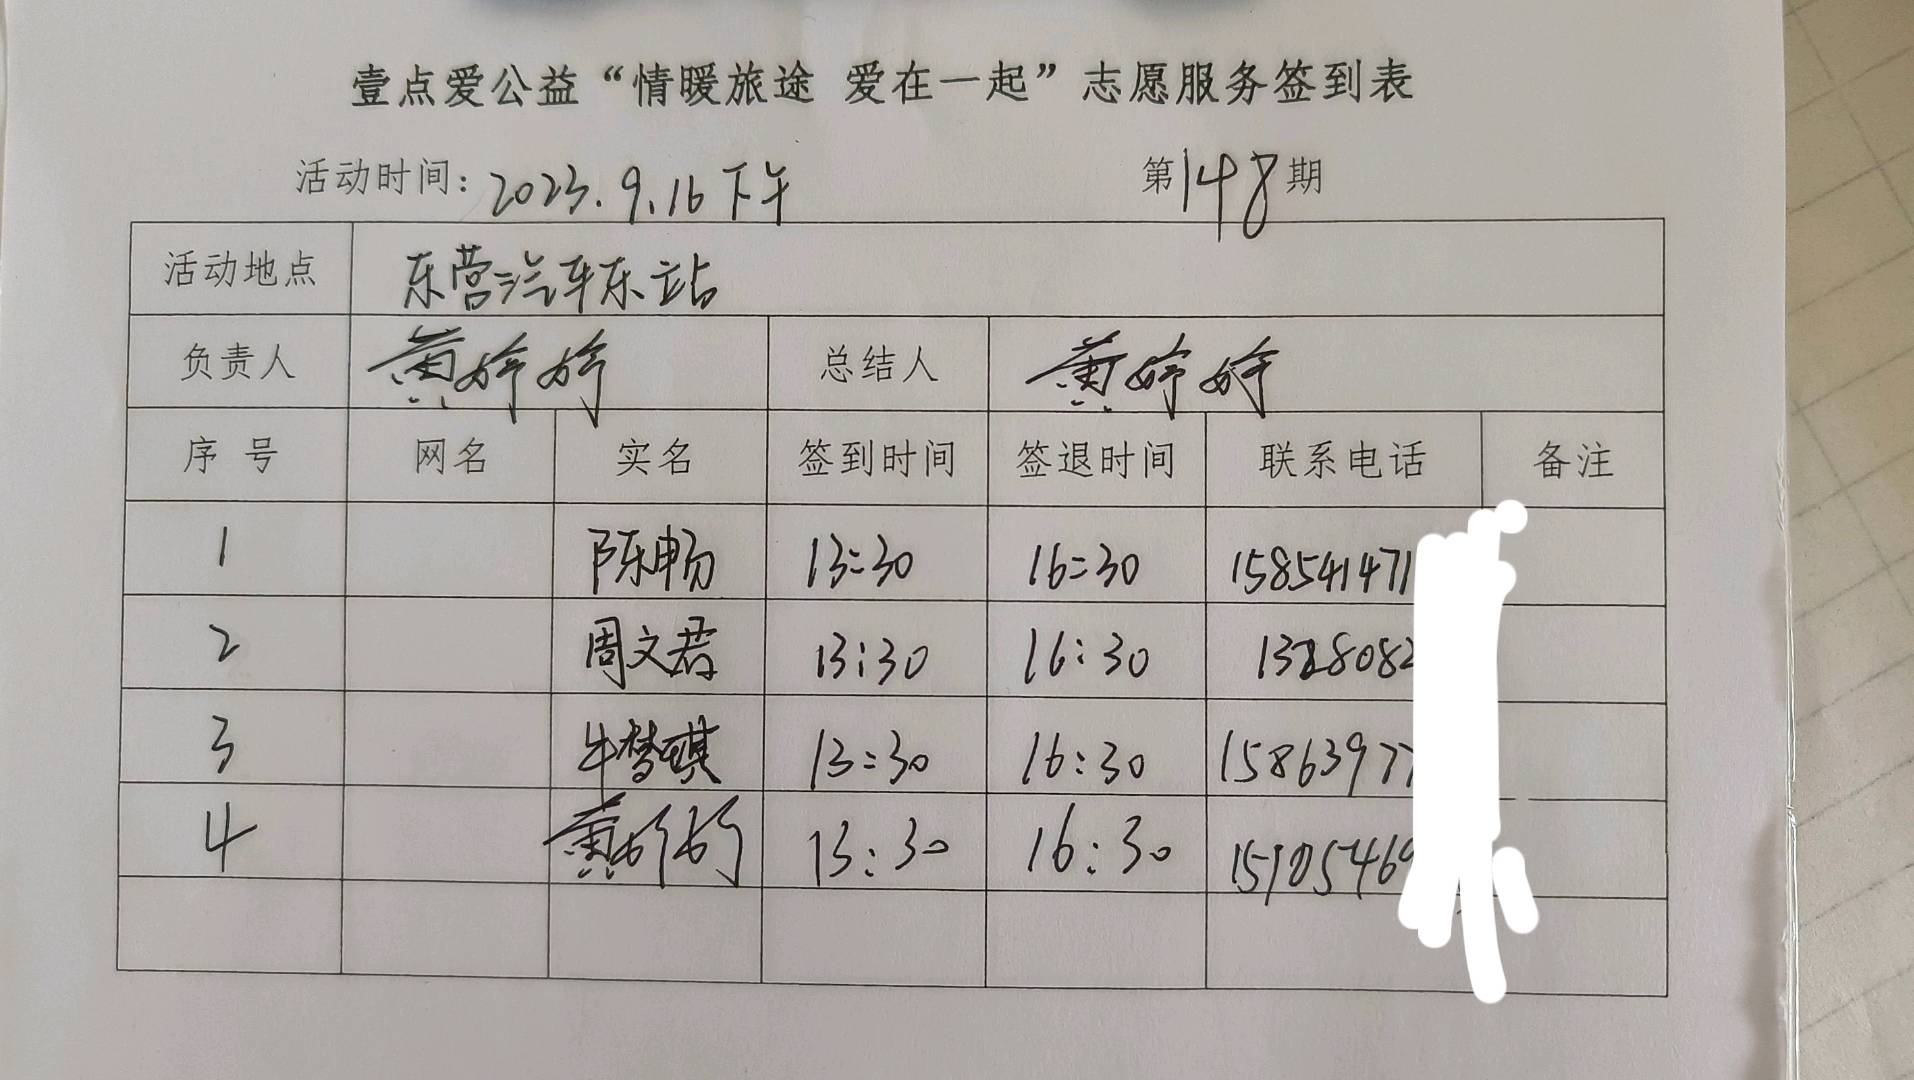 壹点爱公益“情暖旅途 爱在一起”志愿服务签到表
活动时间: 2023.9.16下午 第148期
活动地点 东营汽车东站
负责人 黄婷婷 总结人 黄婷婷
序号 网名 实名 签到时间 签退时间 联系电话 备注
1 陈畅 13:30 16:30 158541471
2 周文君 13:30 16:30 1328082
3 牛梦琪 13:30 16:30 15863977
4 黄婷婷 13:30 16:30 15905469